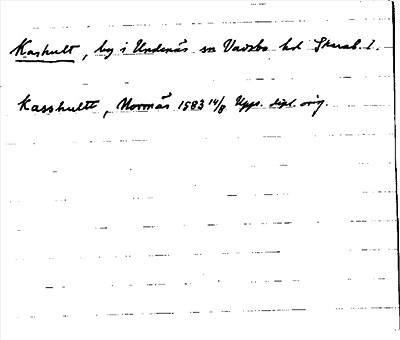 Kashult, by i Undenäs sn Vadsbo hd Skarab. l.
Kasshullt, Norrnäs 1583 14/8 Upps. dipl. orig.